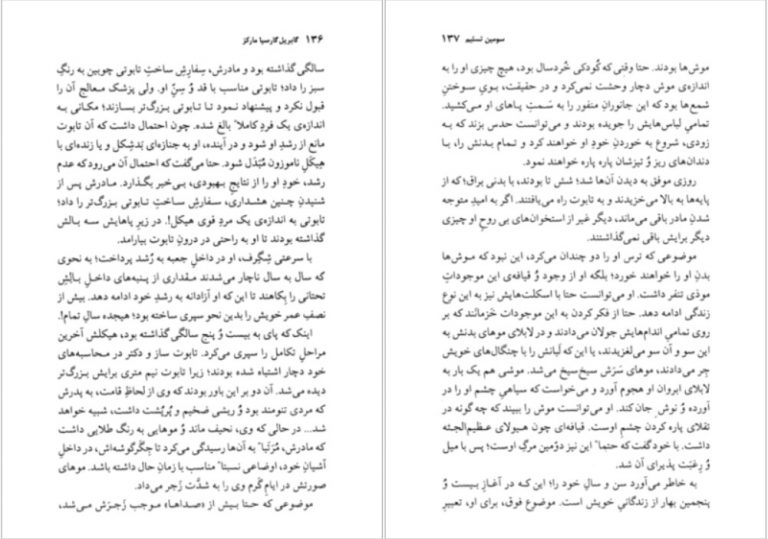 ۱۳۶ گابریل گارسیا مارکز
سالگی گذاشته بود و مادرش، سِفارشِ ساختِ تابوتی چوبین به رنگِ
سبز را داد؛ تابوتی مناسب با قد وُ سِنِّ او. ولی پزشک معالج آن را
قبول نکرد و پیشنهاد نمود تا تابوتی بزرگ‌تر بسازند؛ مکانی به
اندازه‌ی یک فردِ کاملا" بالغ شده. چون احتمال داشت که آن تابوت
مانع از رشدِ او شود و در آینده، او به جنازه‌ای بَدشِکل و یا زنده‌ای با
هیکَلِ ناموزون مُبَدَل شود. حتا می‌گفت که احتمال آن می‌رود که عدم
رشد، خودِ او را از نتایج بهبودی، بی‌خبر بگذارد. مادرش پس از
شنیدنِ چنین هشداری، سفارشِ ساختِ تابوتی بزرگ‌تر را داد؛
تابوتی به اندازه‌ی یک مردِ قوی هیکل!. در زیرِ پاهایش سه بالش
گذاشته بودند تا او به راحتی در درونِ تابوت بیارامد.
با سرعتی شِگِرف، او در داخلِ جعبه به رُشد پرداخت؛ به نحوی
که سال به سال ناچار می‌شدند مقداری از پنبه‌های داخلِ بالِشِ
تحتانی را بِکاهند تا این که او آزادانه به رشدِ خود ادامه دهد. بیش از
نصفِ عمر خویش را بدین نحو سپری ساخته بود؛ هیجده سالِ تمام!.
اینک که پای به بیست وُ پنج سالگی گذاشته بود، هیکلش آخرین
مراحلِ تکامل را سپری می‌کرد. تابوت ساز و دکتر در محاسبه‌های
خود دچار اشتباه شده بودند؛ زیرا تابوت نیم متری برایش بزرگ‌تر
دیده می‌شد. آن دو بر این باور بودند که وی از لحاظِ قامت، به پدرش
که مردی تنومند بود وُ ریشی ضَخیم و پُرپُشت داشت، شبیه خواهد
شد... در حالی که وی، نحیف ماند وُ موهایی به رنگ طلایی داشت
که مادرش، مُرَتَبا" به آن‌ها رسیدگی می‌کرد تا جِگَرگوشه‌اش، در داخلِ
آشیانِ خود، اوضاعی نسبتا" مناسب با زمانِ حال داشته باشد. موهای
صورتش در ایامِ گَرم وی را به شدَّت زَجر می‌داد.
موضوعی که حتا بیش از «صداها» موجب زَجرَش می‌شد،
سومین تسلیم ۱۳۷
موش‌ها بودند. حتا وقتی که کُودکی خُردسال بود، هیچ چیزی او را به
اندازه‌ی موش دچار وحشت نمی‌کرد و در حقیقت، بویِ سوختنِ
شمع‌ها بود که این جانورانِ منفور را به سَمتِ پاهای او می‌کشید.
تمامیِ لباس‌هایش را جویده بودند و می‌توانست حدس بزند که به
زودی، شروع به خوردنِ خودِ او خواهند کرد و تمام بدنش را، با
دندان‌های ریز وُ تیزشان پاره پاره خواهند نمود.
روزی موفق به دیدنِ آن‌ها شد؛ شش تا بودند، با بدنی براق؛ که از
پایه‌ها به بالا می‌خزیدند و به تابوت راه می‌یافتند. اگر به امیدِ متوجه
شدنِ مادر باقی می‌ماند، دیگر غیر از استخوان‌های بی روحِ او چیزی
دیگر برایش باقی نمی‌گذاشتند.
موضوعی که ترس او را دو چندان می‌کرد، این نبود که موش‌ها
بدنِ او را خواهند خورد؛ بلکه او از وجود وُ قیافه‌ی این موجوداتِ
موذی تنفر داشت. او می‌توانست حتا با اسکلت‌هایش نیز به این نوع
زندگی ادامه دهد. حتا از فکر کردن به این موجودات خَرَمانَند که بر
روی تمامیِ اندام‌هایش جولان می‌دادند و در لابلای موهای بدنش به
این سو و آن سو می‌لغزیدند، یا این که لَبانش را با چنگال‌های خویش
جِر می‌دادند، موهای سَرَش سیخ‌سیخ می‌شد. موشی هم یک بار به
لابلای ابروان او هجوم آورد و می‌خواست که سیاهیِ چشم او را در
آورده وُ نوشِ جان کند. او می‌توانست موش را ببیند که چه گونه در
تقلای پاره کردن چشم اوست. قیافه‌ای چون هیولای عظیم‌الجثه
داشت. با خودگفت که حتما" این نیز دوّمین مرگِ اوست؛ پس با میل
وُ رِغبَت پذیرای آن شد.
به خاطر می‌آورد سن و سالِ خود را؛ این که در آغازِ بیست وُ
پنجمین بهار از زندگانیِ خویش است. موضوعِ فوق، برای او، تعبیرِ